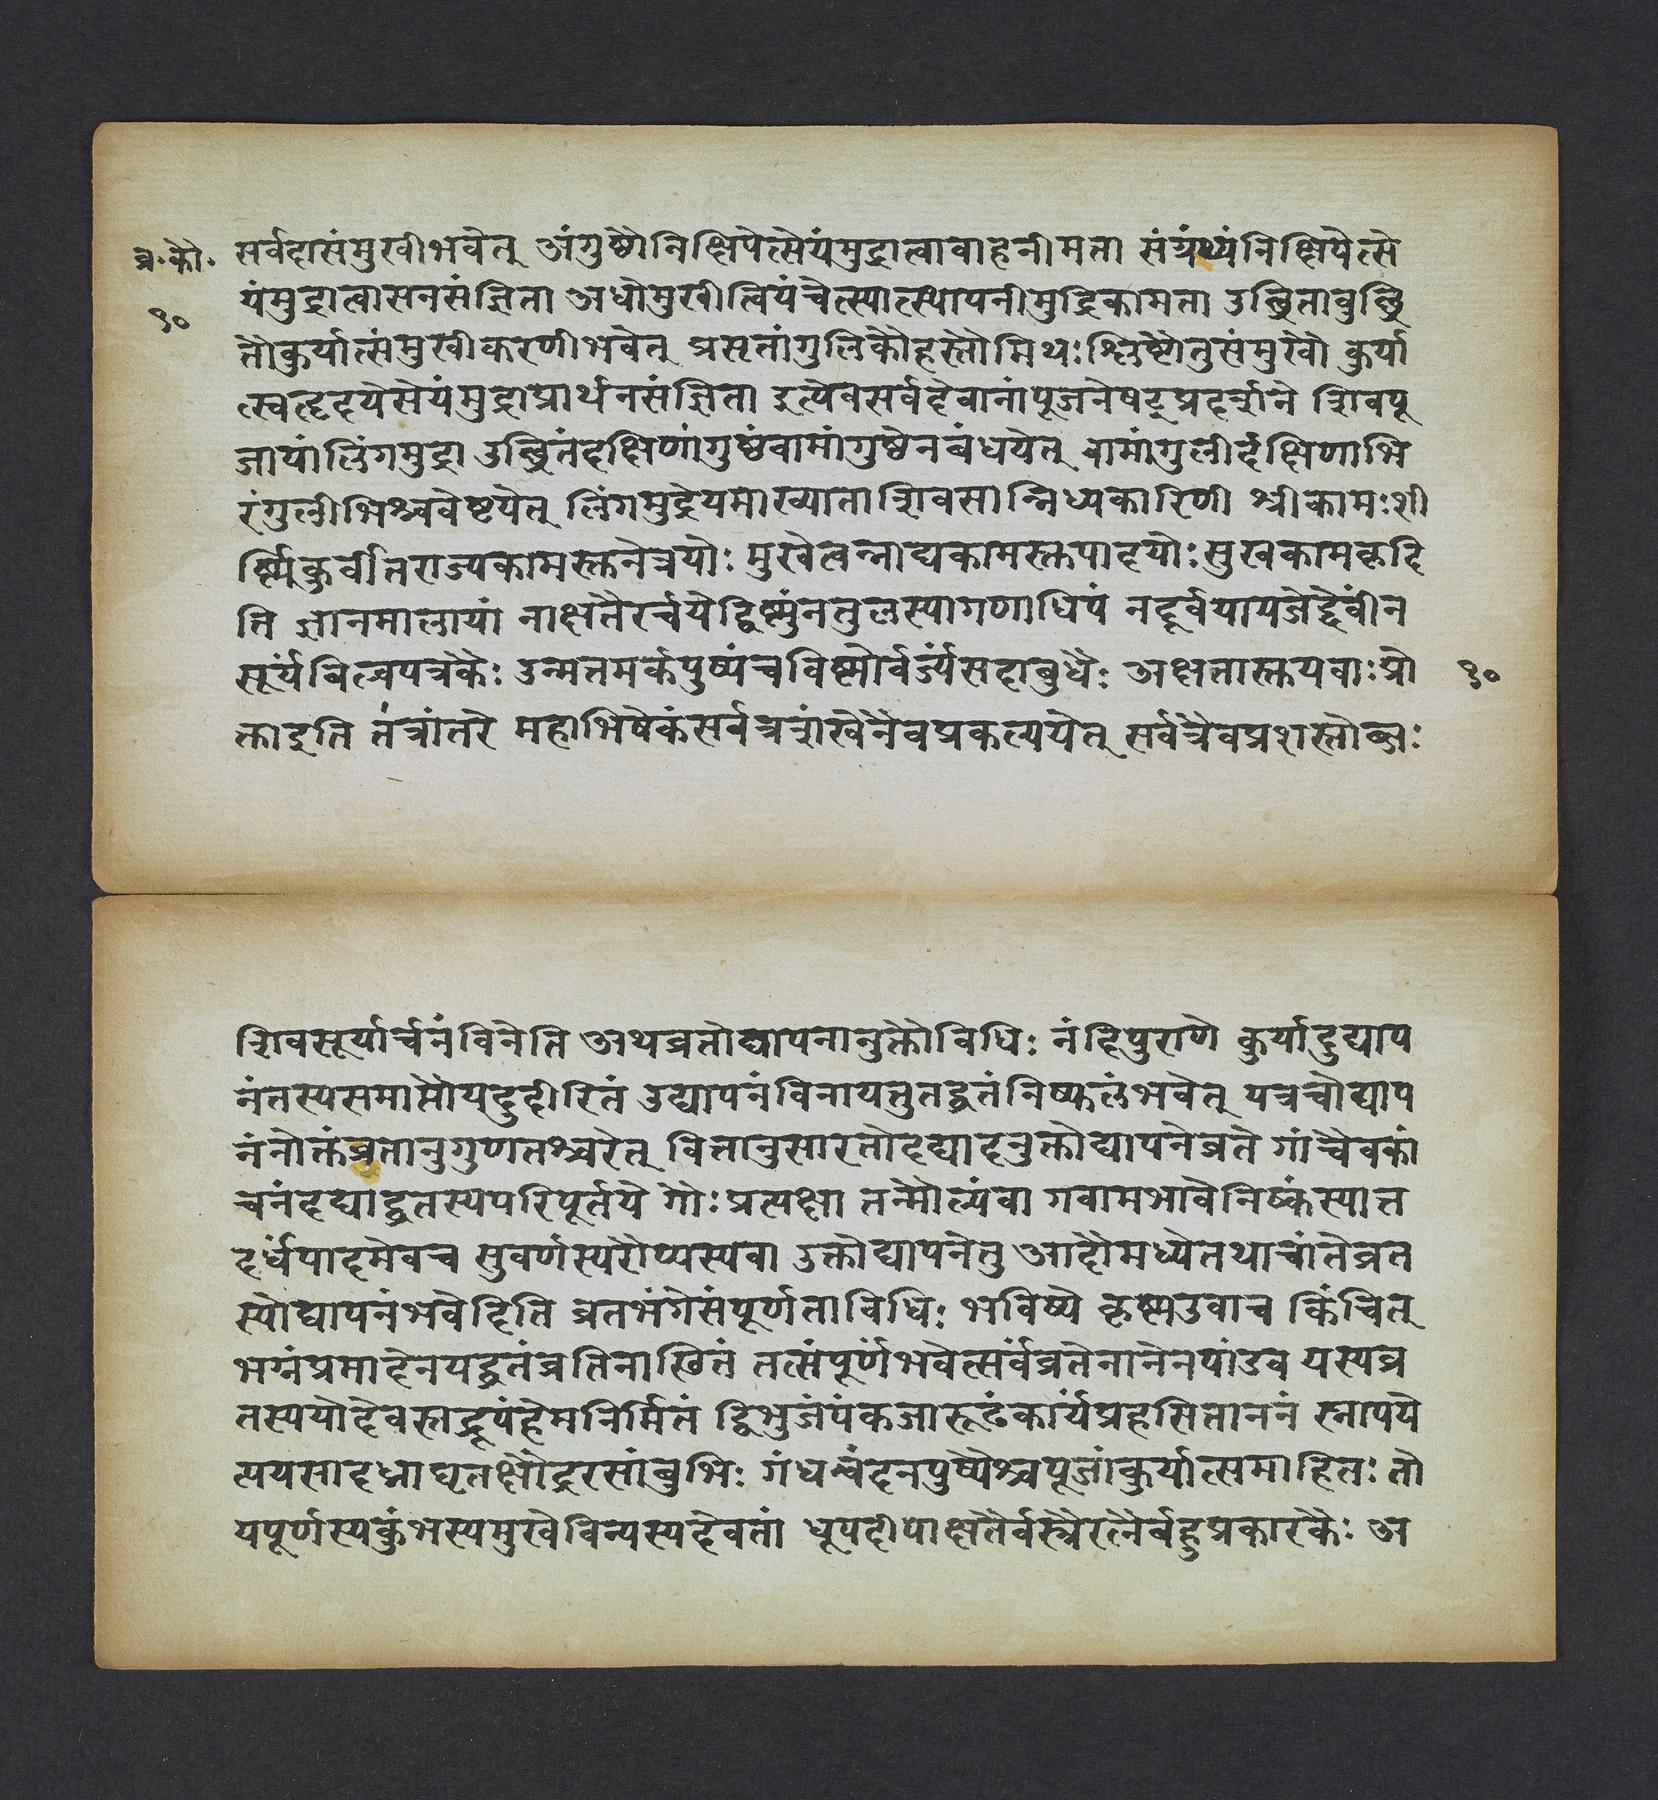 व्र. कौ. सर्वदासंमुखीभवेत् अंगुष्ठौनिक्षिपेत्सेयंमुद्रात्वावाहनीमता संग्रंथ्यंनिक्षिपेत्से
१० यंमुद्रात्वासनसंज्ञिता अधोमुखीत्वियंचेत्स्यात्स्थापनीमुद्रिकामता उच्छ्रितावुच्छ्रि
तौकुर्यात्संमुखीकरणीभवेत् प्रसृतांगुलिकौहस्तौमिथःश्लिष्टौतुसंमुखौ कुर्या
त्स्वहृदयेसेयंमुद्राप्रार्थनसंज्ञिता इत्येवसर्वदेवानांपूजनेषट्प्रदर्शने शिवपू
जायांलिंगमुद्रा उच्छ्रितंदक्षिणांगुष्ठंवामांगुष्ठेनबंधयेत् वामांगुलीर्दक्षिणाभि
रंगुलीभिश्चवेष्टयेत् लिंगमुद्रेयमाख्याताशिवसान्निध्यकारिणी श्रीकामःशी
र्ष्ण्निकुर्वीतराज्यकामस्तुनेत्रयोः मुखेत्वन्नाद्यकामस्तुपादयोःसुखकामकृदि
ति ज्ञानमालायां नाक्षतैरर्चयेद्विष्णुंनतुलस्यागणाधिपं नदूर्वयायजेद्देवींन
सूर्यंबिल्वपत्रकैः उन्मत्तमर्कपुष्पंचविष्णोर्वर्ज्यंसदाबुधैः अक्षतास्तुयवाःप्रो १०
क्ताइति तंत्रांतरे महाभिषेकंसर्वत्रशंखेनैवप्रकल्पयेत् सर्वत्रैवप्रशस्तोब्जः
शिवसूर्यार्चनंविनेति अथव्रतोद्यापनानुक्तौविधिः नंदिपुराणे कुर्यादुद्याप
नंतस्यसमाप्तौयदुदीरितं उद्यापनंविनायत्तुतद्व्रतंनिष्फलंभवेत् यत्रचोद्याप
नंनोक्तंव्रतानुगुणतश्चरेत् वित्तानुसारतोदद्यादनुक्तोद्यापनेव्रते गांचैवकां
चनंदद्याद्व्रतस्यपरिपूर्तये गौःप्रत्यक्षा तन्मौल्यंवा गवामभावेनिष्कंस्यात्त
दर्धंपादमेवच सुवर्णस्यरौप्यस्यवा उक्तोद्यापनेतु आदौमध्येतथाचांतेव्रत
स्योद्यापनंभवेदिति व्रतभंगेसंपूर्णताविधिः भविष्ये कृष्णउवाच किंचित्
भग्नंप्रमादेनयद्व्रतंव्रतिनाखितं तत्संपूर्णंभवेत्सर्वंव्रतेनानेनपांडव यस्यव्र
तस्ययोदेवस्तद्रूपंहेमनिर्मितं द्विभुजंपंकजारूढंकार्यंप्रहसिताननं स्नापये
त्पयसादध्नाघृतक्षौद्ररसांबुभिः गंधश्चंदनपुष्पैश्चपूजांकुर्यात्समाहितः तो
यपूर्णस्यकुंभस्यमुखेविन्यस्यदेवतां धूपदीपाक्षतैर्वस्त्रैरत्नैर्बहुप्रकारकैः अ